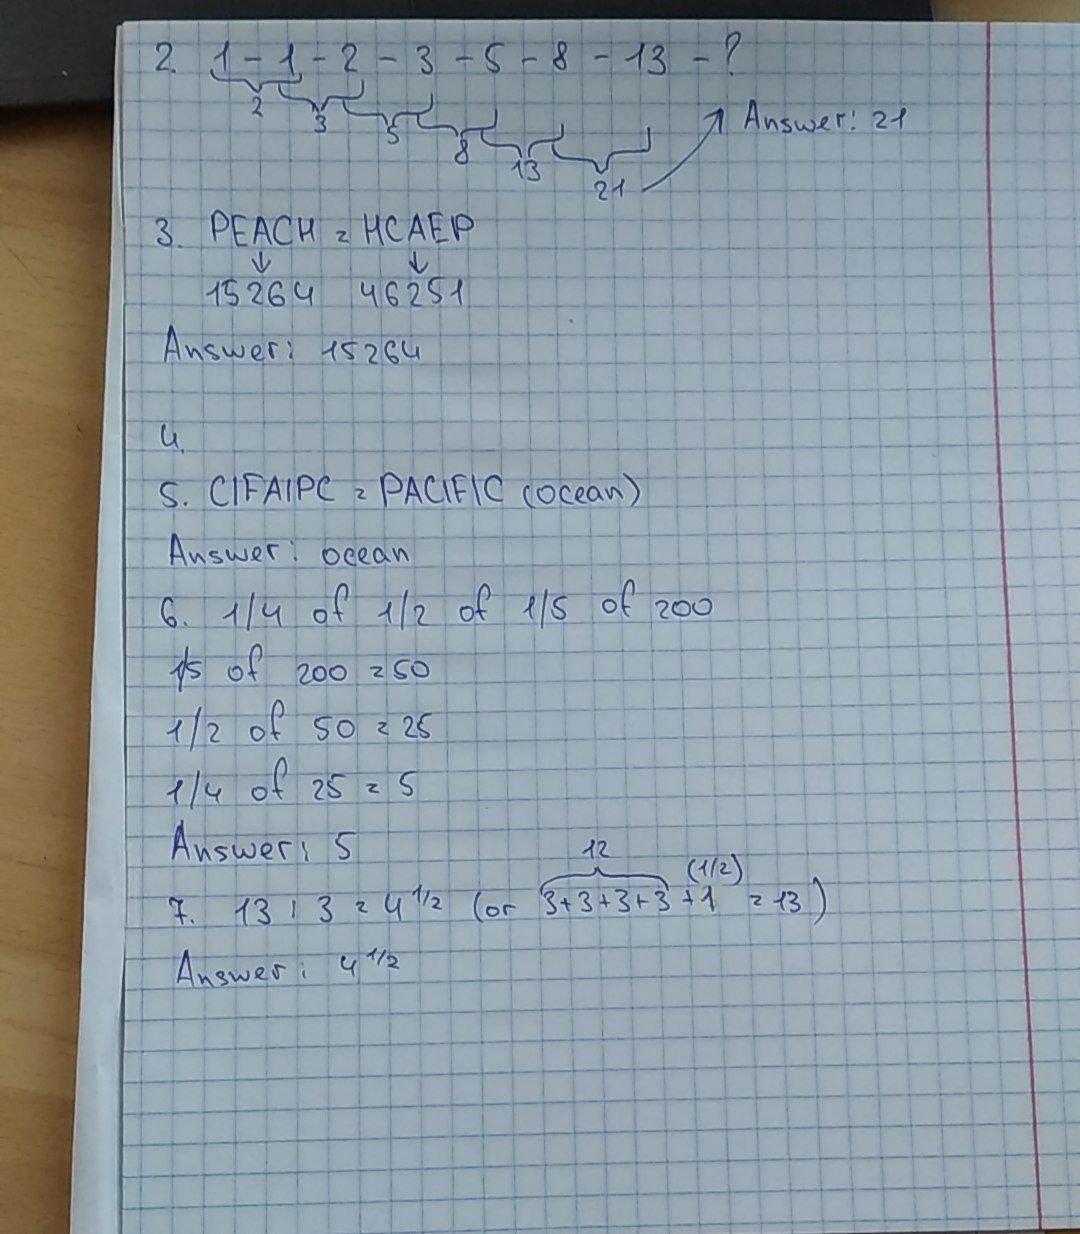 2. 1 - 1 - 2 - 3 - 5 - 8 - 13 - ?
2 3 5 8 13 21
Answer: 21
3. PEACH = HCAEP
↓ ↓
15264 46251
Answer: 15264
4.
5. CIFAIPC = PACIFIC (ocean)
Answer: ocean
6. 1/4 of 1/2 of 1/5 of 200
1/5 of 200 = 50
1/2 of 50 = 25
1/4 of 25 = 5
Answer: 5
12 (1/2)
7. 13 : 3 = 4 1/2 (or 3+3+3+3 +1 = 13)
Answer: 4 1/2